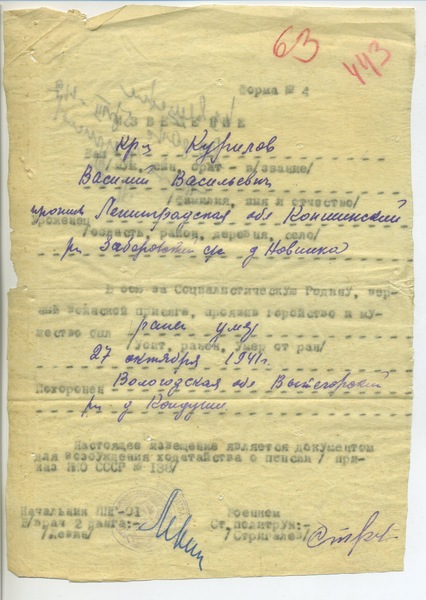 63
443
Форма № 4
ИЗВЕЩЕНИЕ
крц Курилов
Ваш
/муж, сын, брат - в/звание/
Василий Васильевич
/фамилия, имя и отчество/
Ленинградская обл
Уроженец
/область, район, деревня, село/
рн Заборовский с/с д Новинка
В бою за Социалистическую Родину, вер-
ный воинской присяге, проявив геройство и му-
жество был ранен умер
/Убит, ранен, умер от ран/
27 октября 1941г.
Похоронен Вологодская обл Вытегорский
рн д Кондуши
Настоящее извещение является документом
для возбуждения ходатайства о пенсии / при-
каз НКО СССР № 138/
Начальник ППГ-01
в/врач 2 ранга:-
/Левин/
Военком
Ст. политрук:-
/Стригалев/